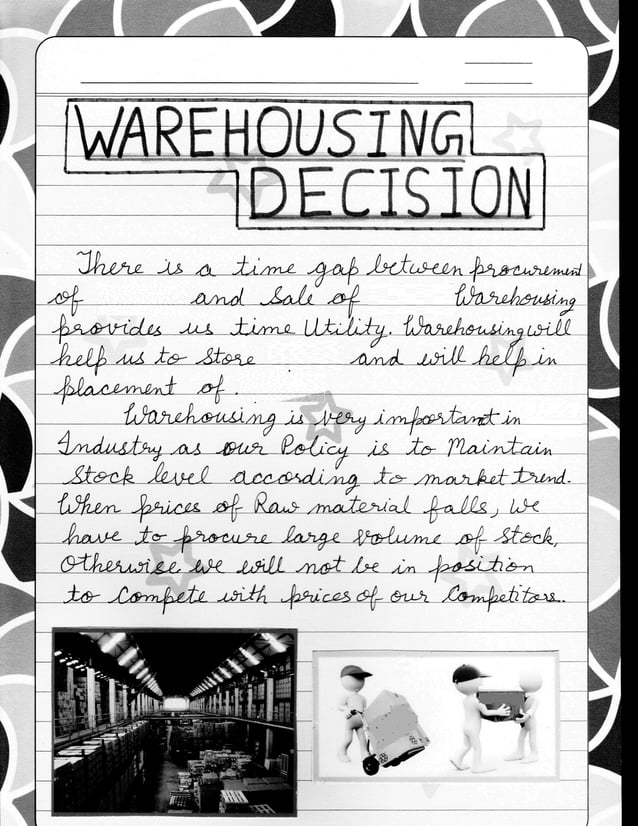 WAREHOUSING
DECISION
There is a time gap between procurement
of and Sale of Warehousing
provides us time Utility. Warehousing will
help us to Store and will help in
placement of .
Warehousing is very important in
Industry as our Policy is to Maintain
Stock level according to market trend.
When prices of Raw material falls, we
have to procure large volume of Stock,
Otherwise we will not be in position
to Compete with prices of our Competitors..